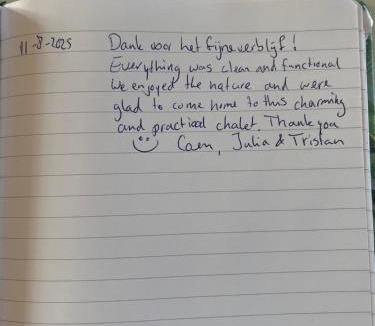 11-8-2025 Dank voor het fijne verblijf!
Everything was clean and functional
We enjoyed the nature and were
glad to come home to this charming
and practical chalet. Thank you
Caen, Julia & Tristan